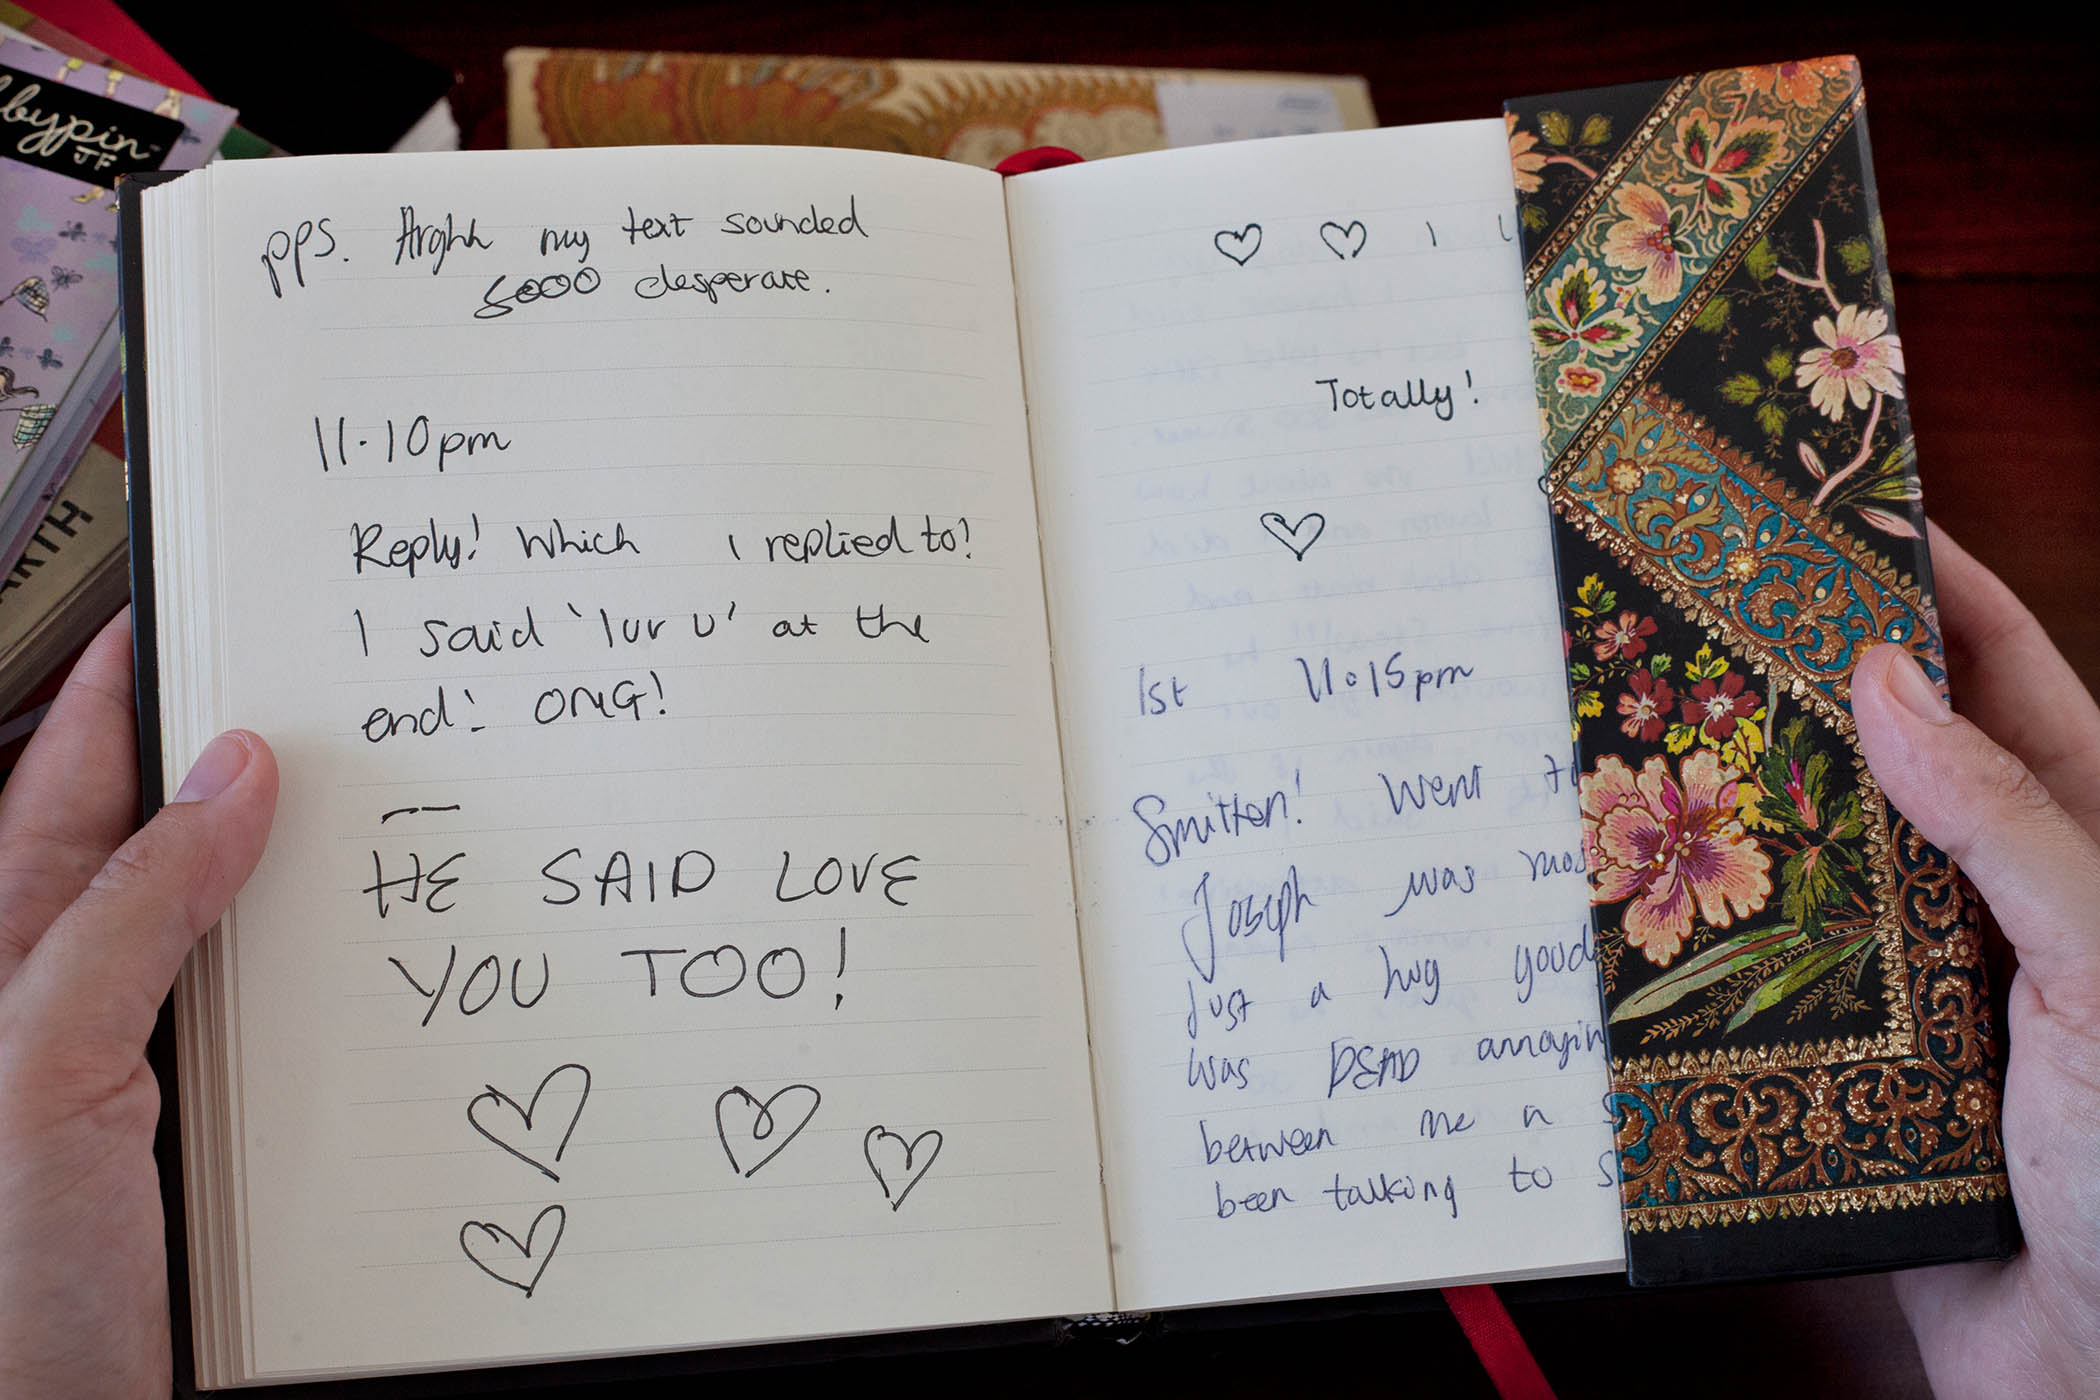 pps. Arghh my text sounded
sooo desperate.
11.10pm
Reply! Which I replied to!
I said 'luv u' at the
end! OMG!
HE SAID LOVE
YOU TOO!
I
Totally!
1st 11:15pm
Smitten! Went to
Joseph was
Just a hug
was DEAD
between me n
been talking to
bypin
JF
ARTH